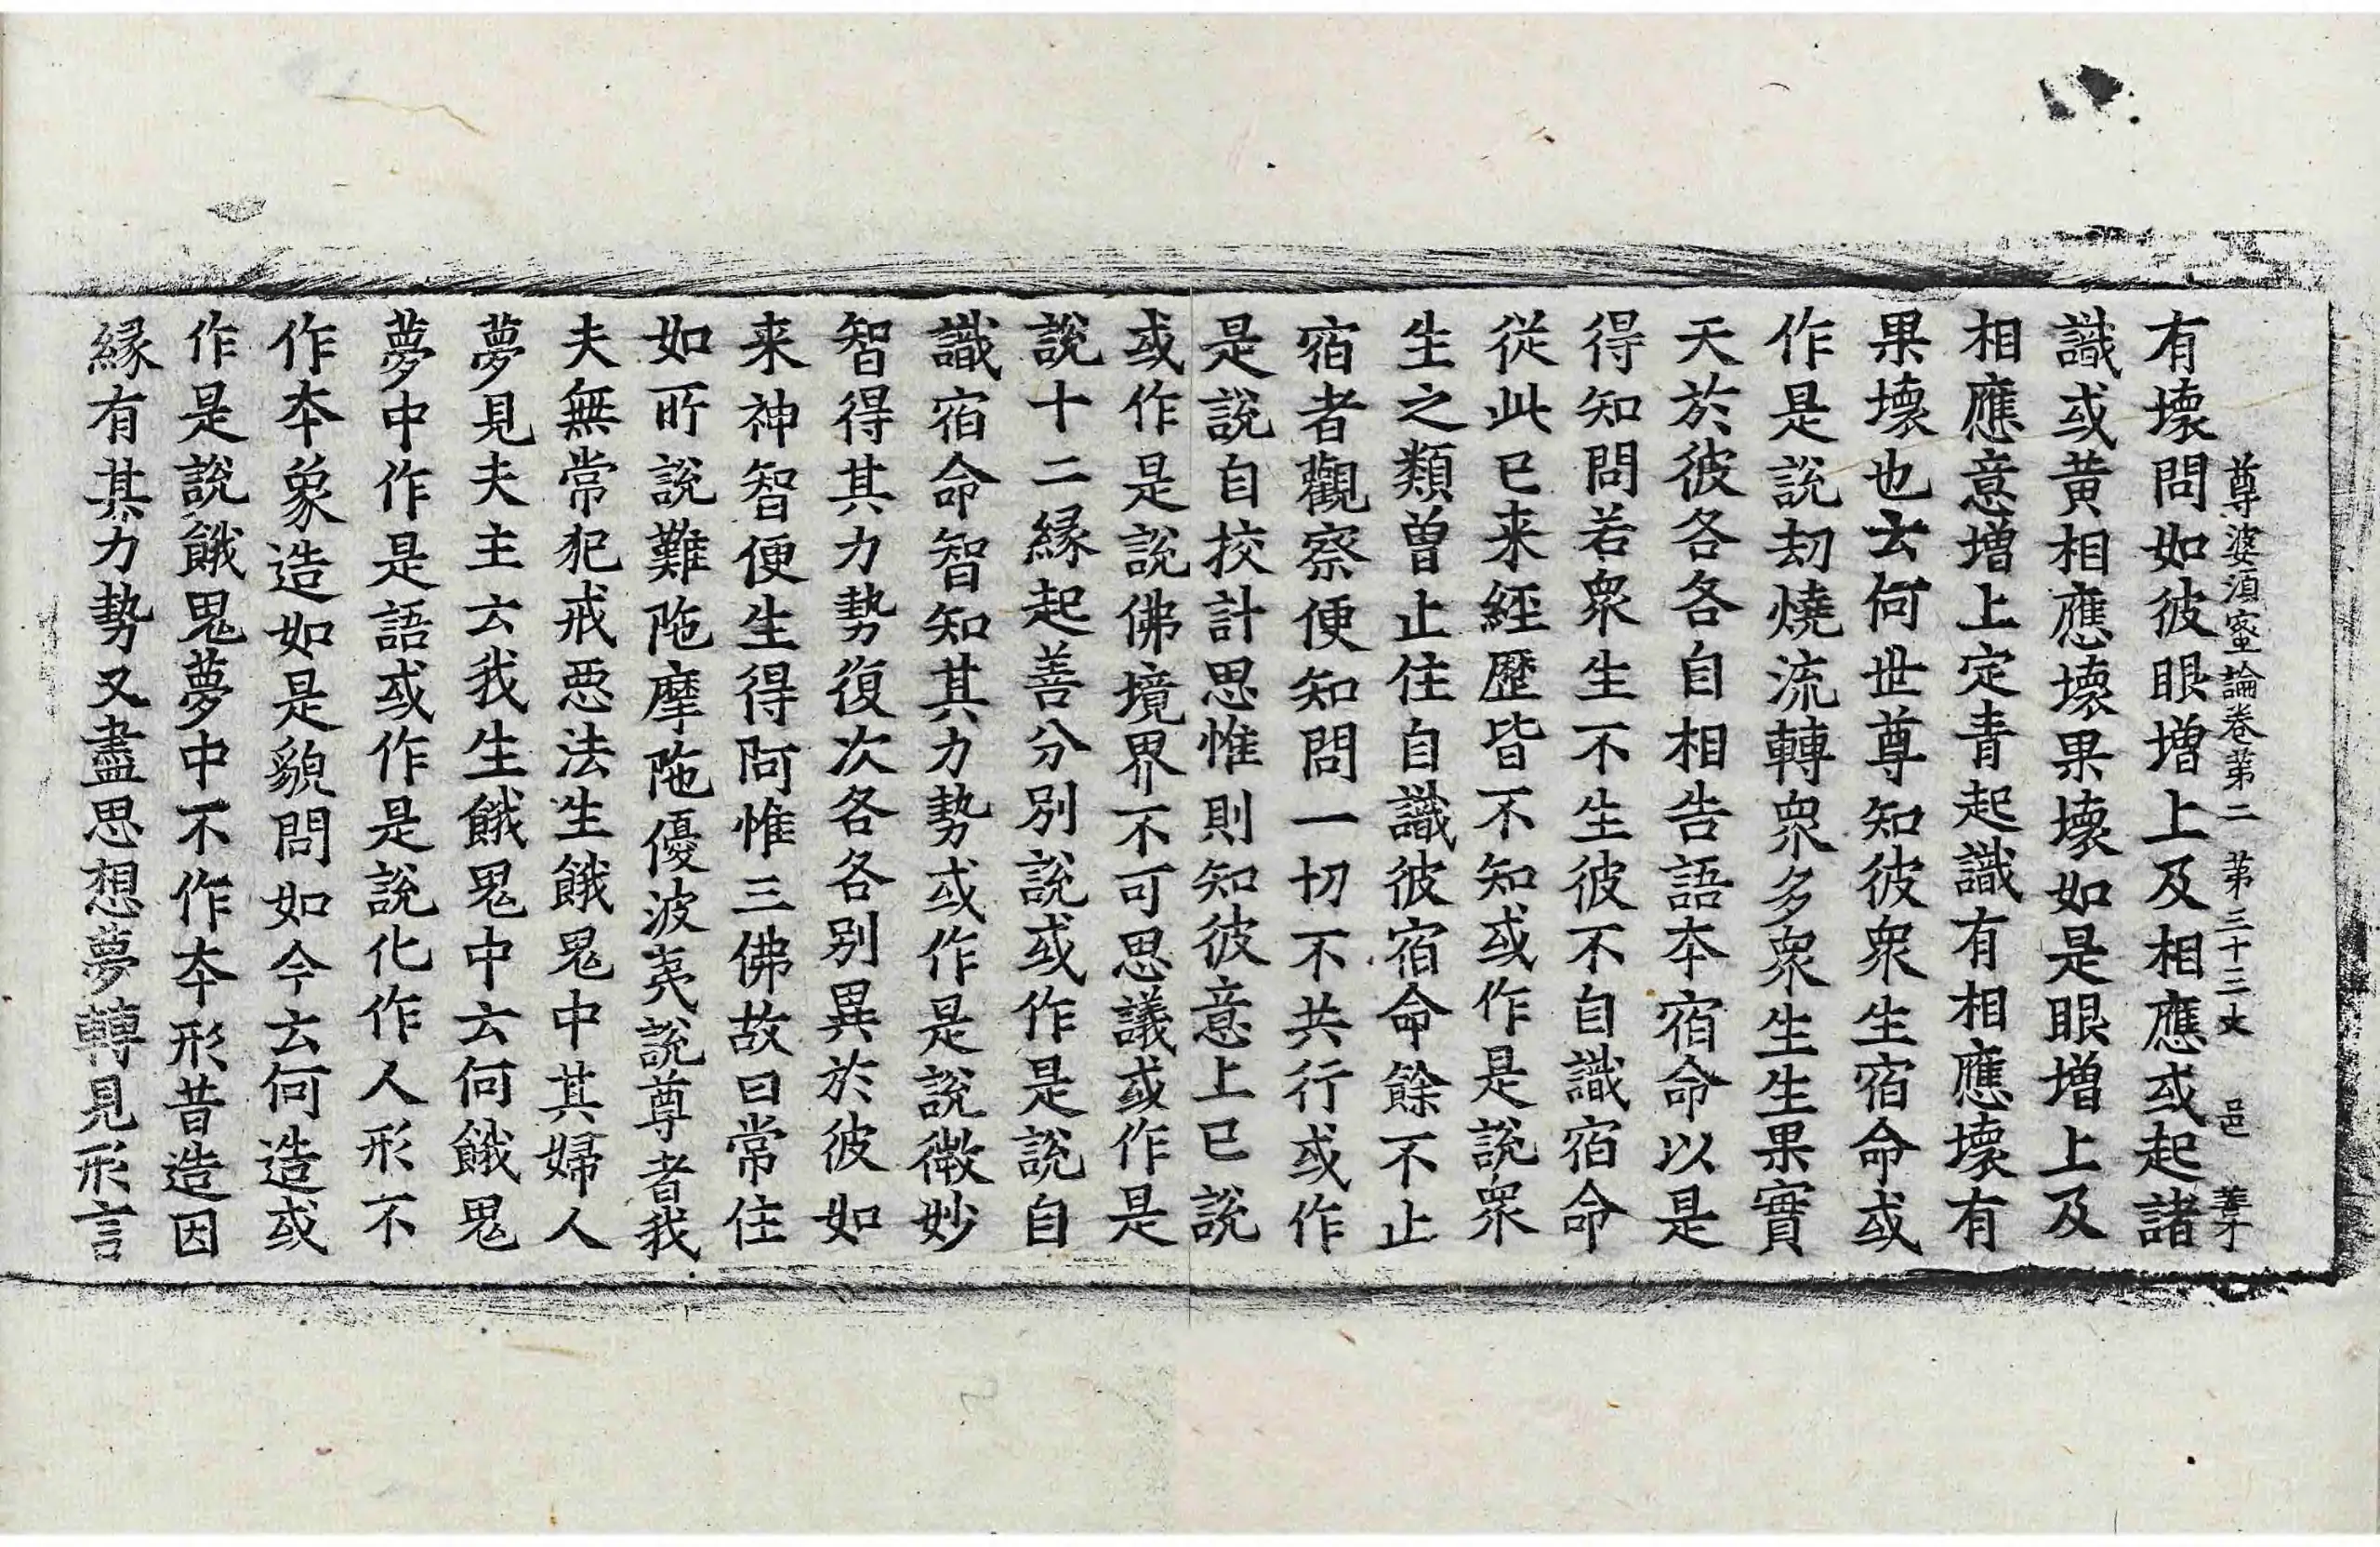 尊婆須蜜論卷第二 第三十三丈 邑
有壞問如彼眼增上及相應或起諸
識或黃相應壞果壞如是眼增上及
相應意增上定青起識有相應壞有
果壞也云何世尊知彼衆生宿命或
作是說劫燒流轉衆多衆生生果實
天於彼各各自相告語本宿命以是
得知問若衆生不生彼不自識宿命
從此已来經歷皆不知或作是說衆
生之類曽止住自識彼宿命餘不止
宿者觀察便知問一切不共行或作
是說自挍計思惟則知彼意上已說
或作是說佛境界不可思議或作是
說十二緣起善分別說或作是說自
識宿命智知其力勢或作是說微妙
智得其力勢復次各各別異於彼如
来神智便生得阿惟三佛故曰常住
如所說難陁摩陁優波夷說尊者我
夫無常犯戒惡法生餓鬼中其婦人
夢見夫主云我生餓鬼中云何餓鬼
夢中作是語或作是說化作人形不
作本象造如是貌問如今云何造或
作是說餓鬼夢中不作本形昔造因
緣有其力勢又盡思想夢轉見形言